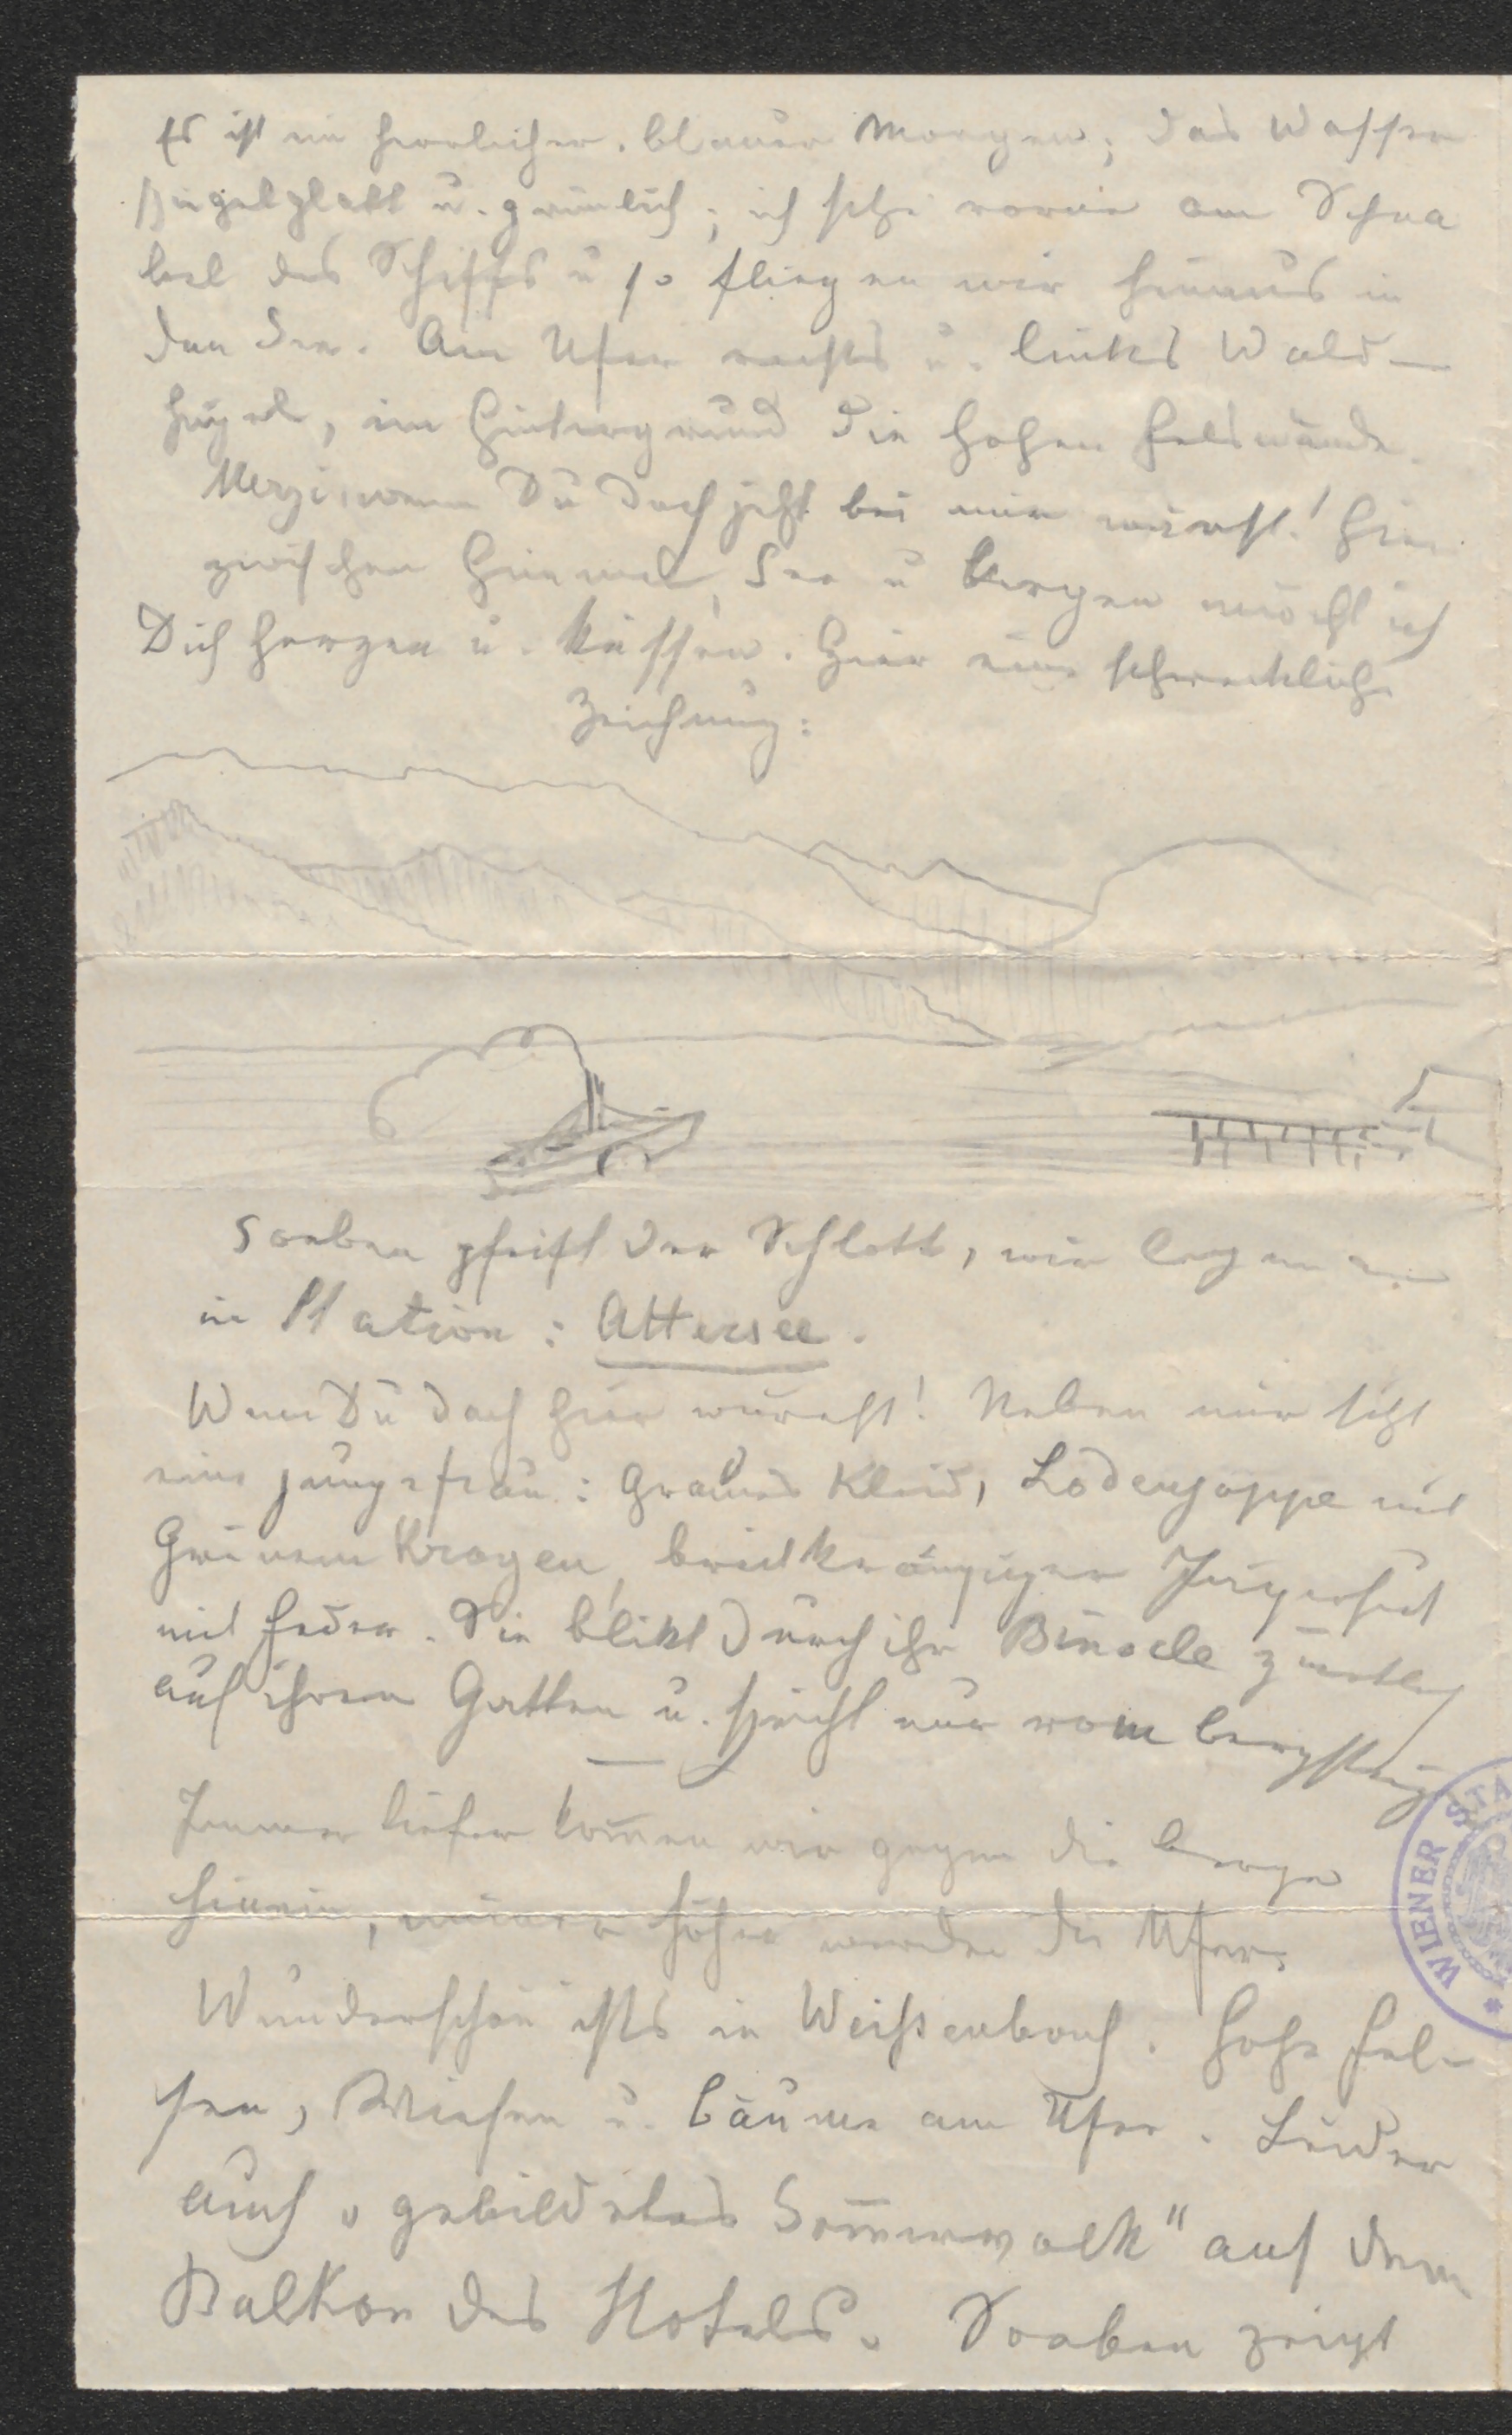 Es ist ein herrlicher, blauer Morgen; das Wasser
spiegelglatt u. grünlich; ich sitze vorne am Schna
bel des Schiffs u so fliegen wir hinaus in
den See. Am Ufer rechts u. links Wald-
hügel, im Hintergrund die hohen Felswände.
wenn Du doch jetzt bei mir wärst! Hier
zwischen Himmel, See u Bergen möcht ich
Dich herzen u. küssen. Hier eine schreckliche
Zeichnung:
Soeben pfeift der Schlott, wir legen an
in Station: Attersee.
Wenn Du doch hier wärest! Neben mir sitzt
eine junge Frau: Graues Kleid, Lodenjoppe mit
Grünem Kragen, breitkrämpiger Jägerhut
mit Feder. Sie blikt durch ihr Binocle zärtlich
auf ihren Gatten u. spricht nur vom Bergsteigen
Immer tiefer kom̅en wir gegen die Berge
hinein, immer höher werden die Ufer.
Wunderschön ists in Weißenbach. Hohe Fel-
sen, Wiesen u. Bäume am Ufer. Leider
auch „gebildetes Som̅ervolk" auf dem
Balkon des Hotels. Soeben zeigt
WIENER STA